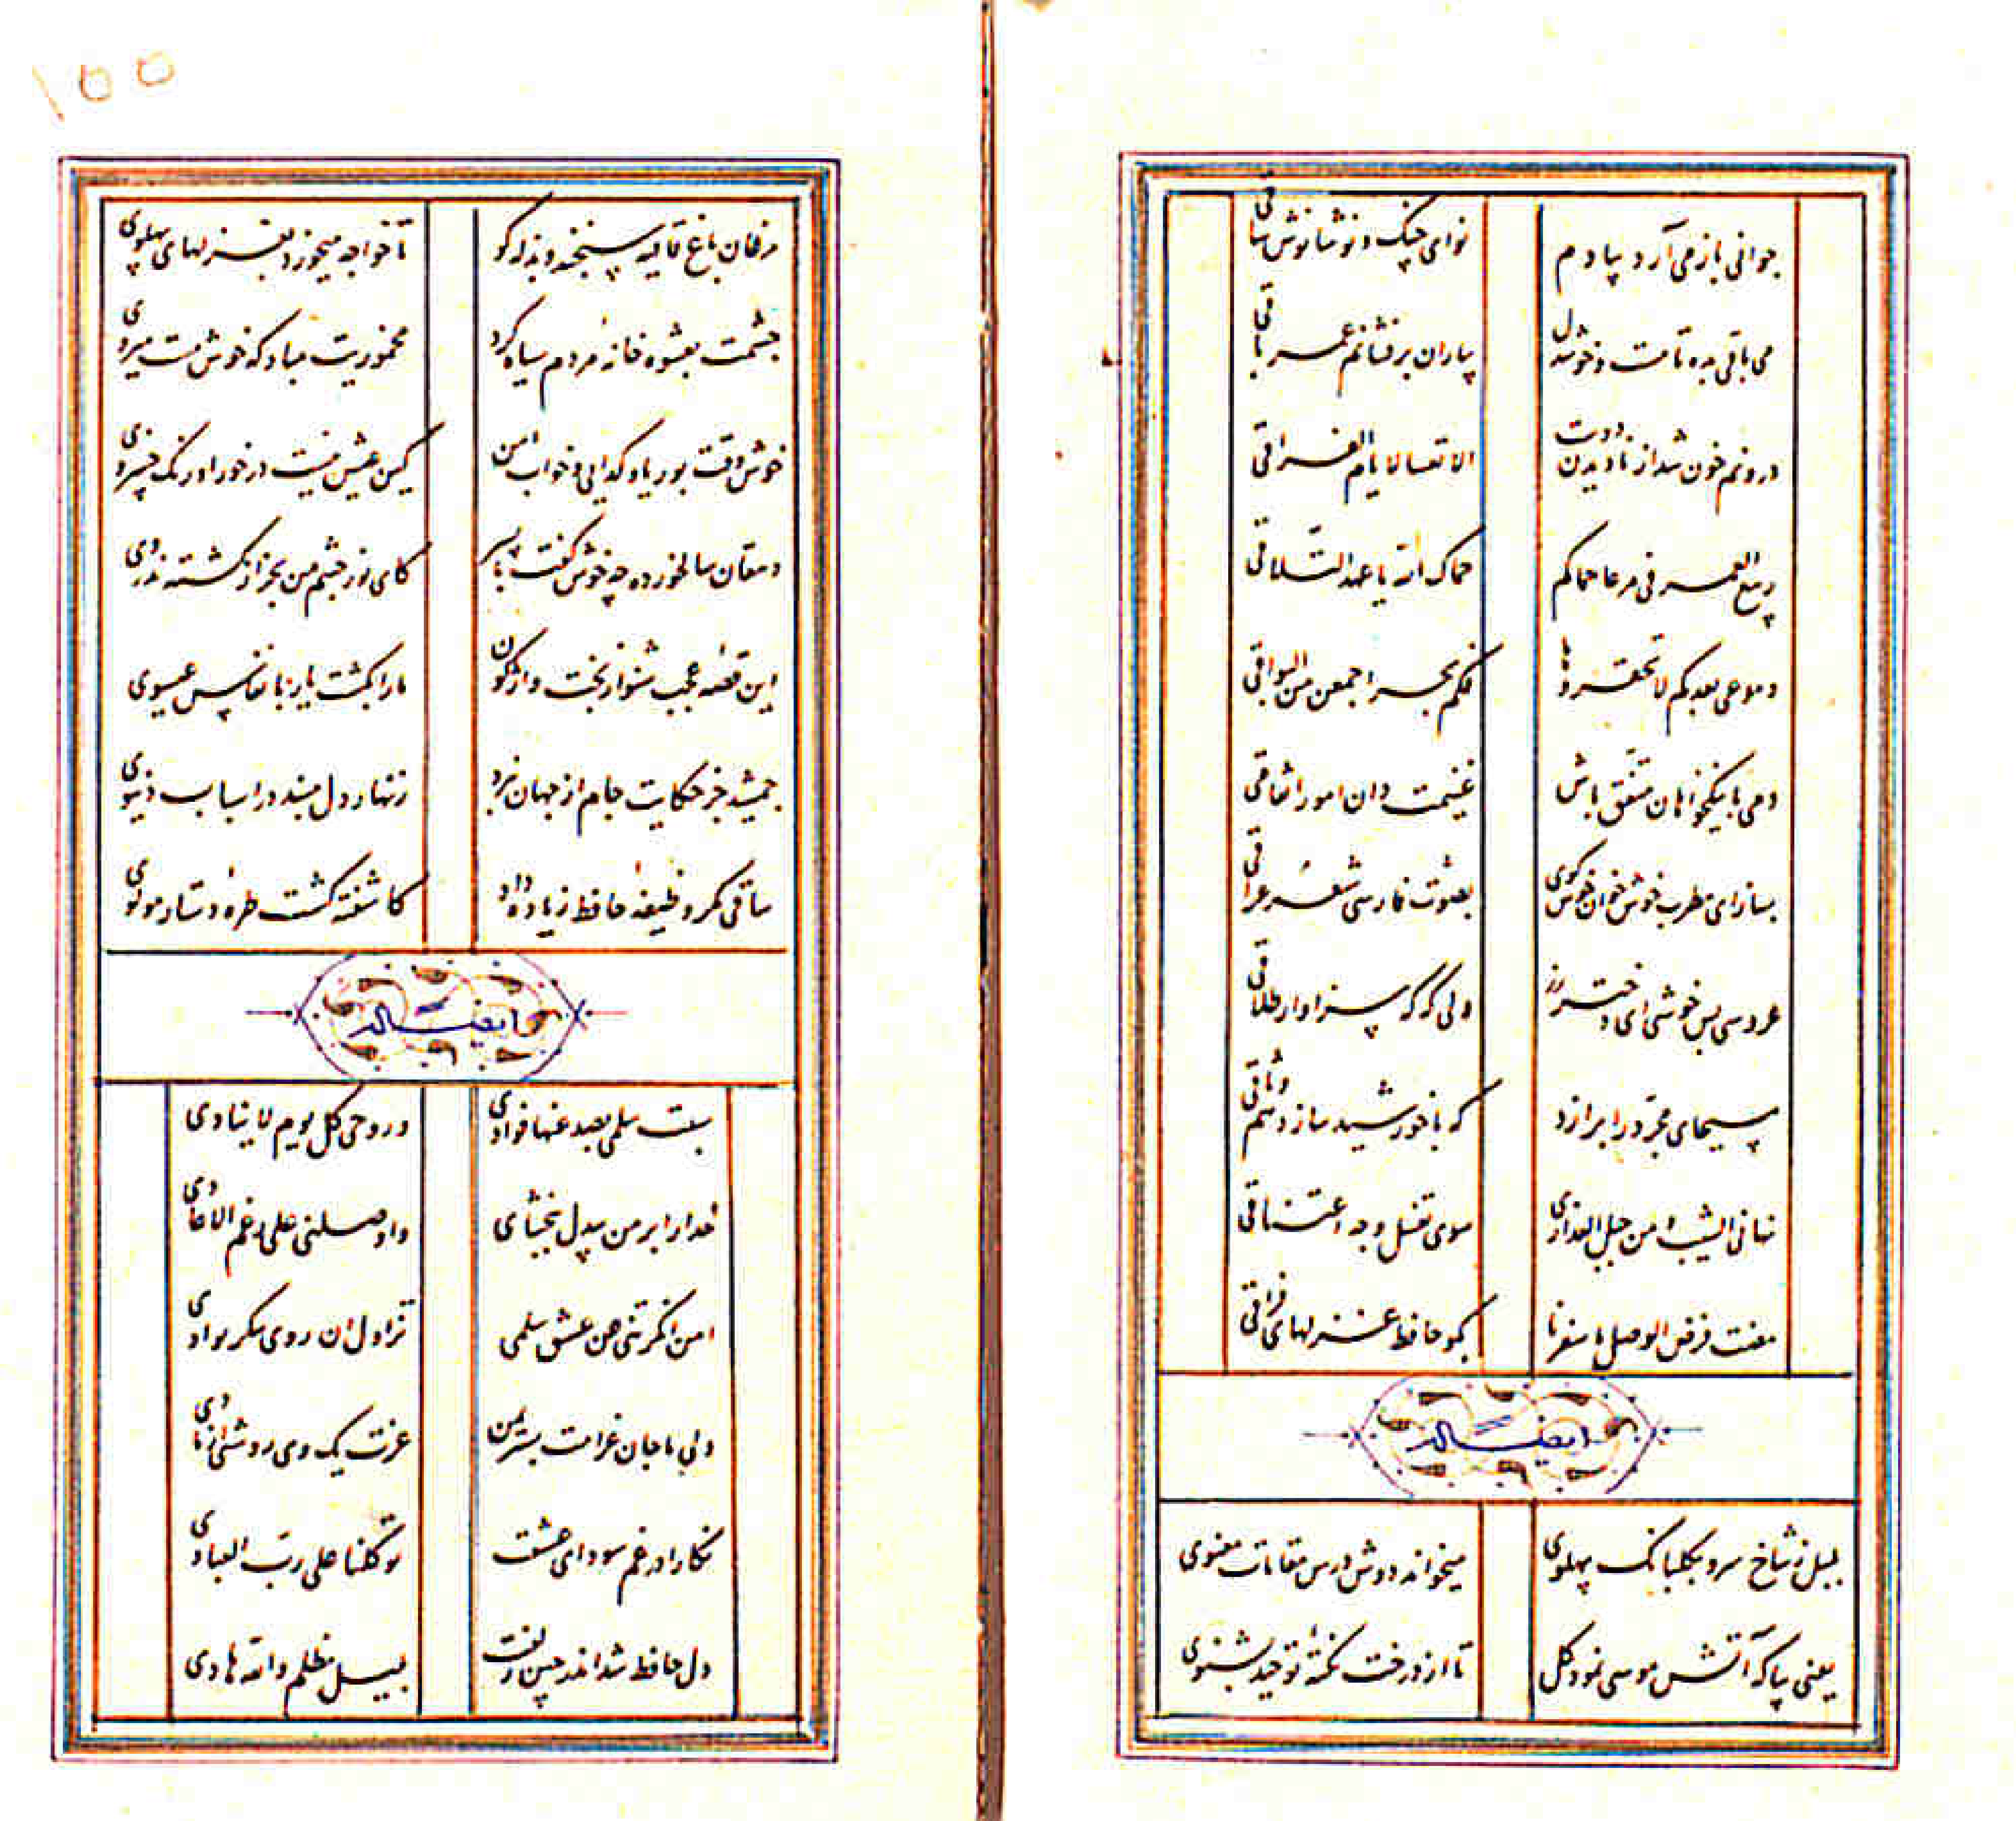 جوانی باز می آرد بیادم نوای چنک و نوشانوش ساقی
می باقی بده تا مست و خوشدل بیاران برفشانم عمر باقی
درونم خون شد از نادیدن دوست الا تعسا لایام الفراقی
ربیع العمر فی مرعا حماکم حماک الله یا عهد التلاقی
دموعی بعدکم لا تحقروها فکم بحر اجمعن من السواقی
دمی با نیکخواهان متفق باش غنیمت دان امور اتفاقی
بساز ای مطرب خوش خوان خوش کوی بصوت فارسی شعر عراقی
عروسی بس خوشی ای دختر رز ولی که که سزاوار طلاقی
مسیحای مجرد را برازد که با خورشید سازد هم وثاقی
نهانی الشیب من جبل العذاری سوی تقبل وجه اعتناقی
مضت فرض الوصل ما سفرنا بکو حافظ غزلهای فراقی
وایضا له
بلبل ز شاخ سرو بکلبانک پهلوی میخواند دوش درس مقامات معنوی
یعنی بیا که آتش موسی نمود کل تا از درخت نکتۀ توحید بشنوی
۱۵۵
مرغان باغ قافیه سنجند و بذله کو تا خواجه میخورد بغزلهای پهلوی
چشمت بعشوه خانۀ مردم سیاه کرد مخموریت مباد که خوش مست میروی
خوش وقت بوریا و کدایی و خواب امن کین عیش نیست درخور اورنک خسروی
دهقان سالخورده چه خوش کفت با پسر کای نور چشم من بجز از کشته ندروی
این قصۀ عجب شنو از بخت واژکون ما را بکشت یار بانفاس عیسوی
جمشید جز حکایت جام از جهان نبرد زنهار دل مبند در اسباب دنیوی
ساقی مکر وظیفۀ حافظ زیاده داد کاشفته کشت طرۀ دستار مولوی
وایضا له
سبت سلمی بصدغنها فوادی و روحی کل یوم لا ینادی
خدا را بر من بیدل ببخشای و اوصلنی علی رغم الاعادی
امن انکرتنی عن عشق سلمی تزاول ان روی نکر بوادی
دلی با جان غرامت بسپریمن غرت یک وی روشتی از نادی
نکارا در غم سودای عشقت توکلنا علی رب العبادی
دل حافظ شد اندر چین زلفت بلیل مظلم والله هادی